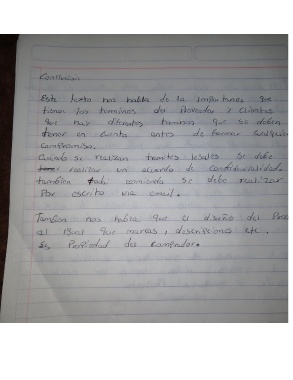 Conclusion
Este texto nos habla de la importancia que
tienen los terminos de Proveedor y clientes
que hay diferentes terminos que se deben
tener en cuenta antes de formar cualquier
compromiso.
Cuando se realizan tramites legales se debe
realizar un acuerdo de confidencialidad
tambien toda comienda se debe realizar
Por escrito via email.
Tambien nos habla que el diseño del Proc
al igual que marcas, descripciones etc.
Es Propiedad del comprador.